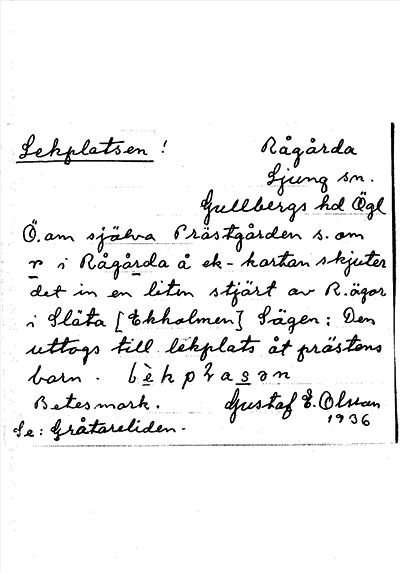 Lekplatsen!
Rågårda
Ljung sn.
Gullbergs hd Ögl
Ö. om själva Prästgården s. om
r i Rågårda å ek-kartan skjuter
det in en liten stjärt av R.ägor
i Slåta [Ekholmen] Sägen: Den
uttogs till lekplats åt prästens
barn.
Betesmark.
Gustaf E. Olsson
1936
Se: Gråtareliden.